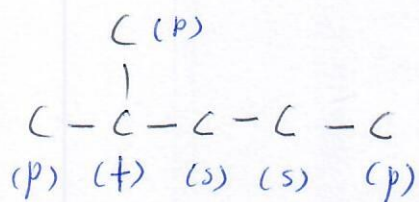 C (p)
|
C - C - C - C - C
(p) (t) (s) (s) (p)